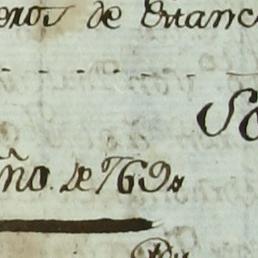 eros de Estanc
So
ño. de 769